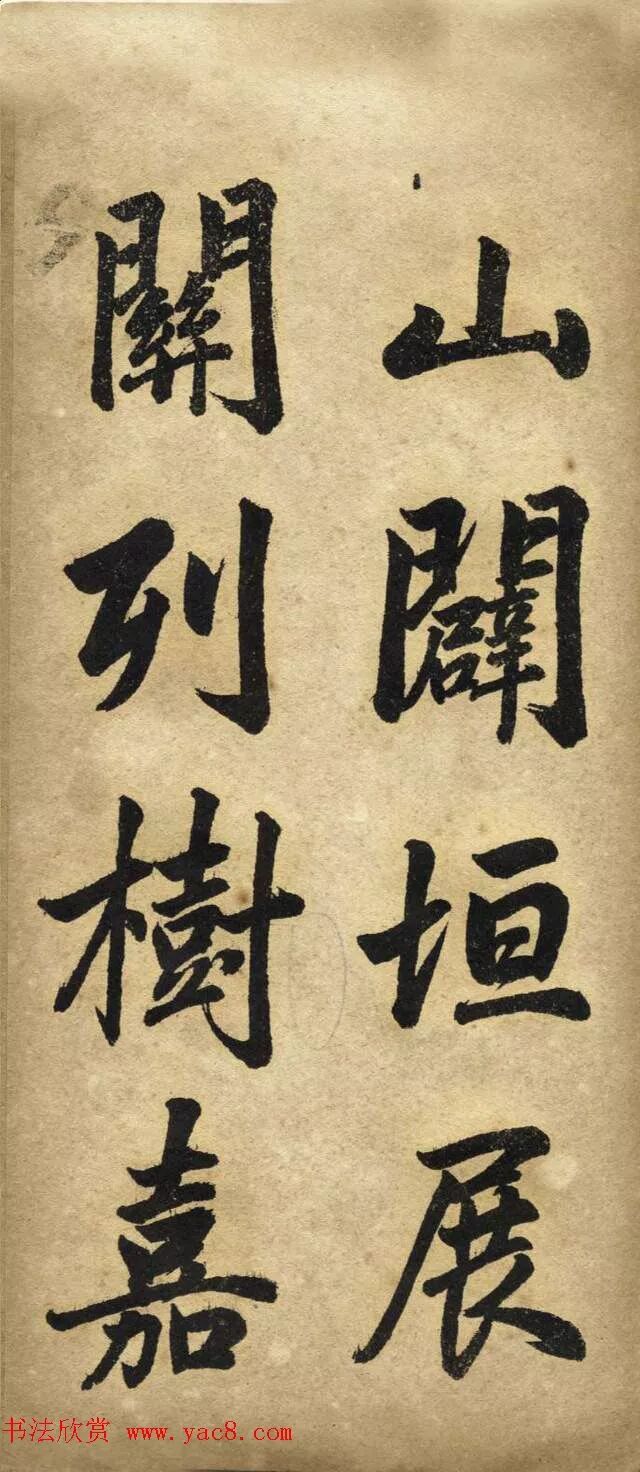 山闢垣展
關列樹嘉
书法欣赏 www.yac8.com